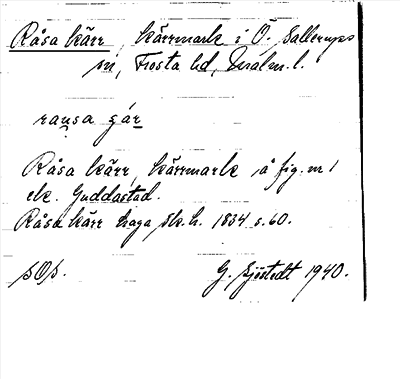 Råsa kärr, kärrmark i Ö. Sallerups
sn, Frosta hd, Malm. l.
rausa gár
Råsa kärr, kärrmark å fig. nr 1
ek. Guddastad.
Råsa kärr haga, sk. h. 1834 s. 60.
G. Sjöstedt 1940.